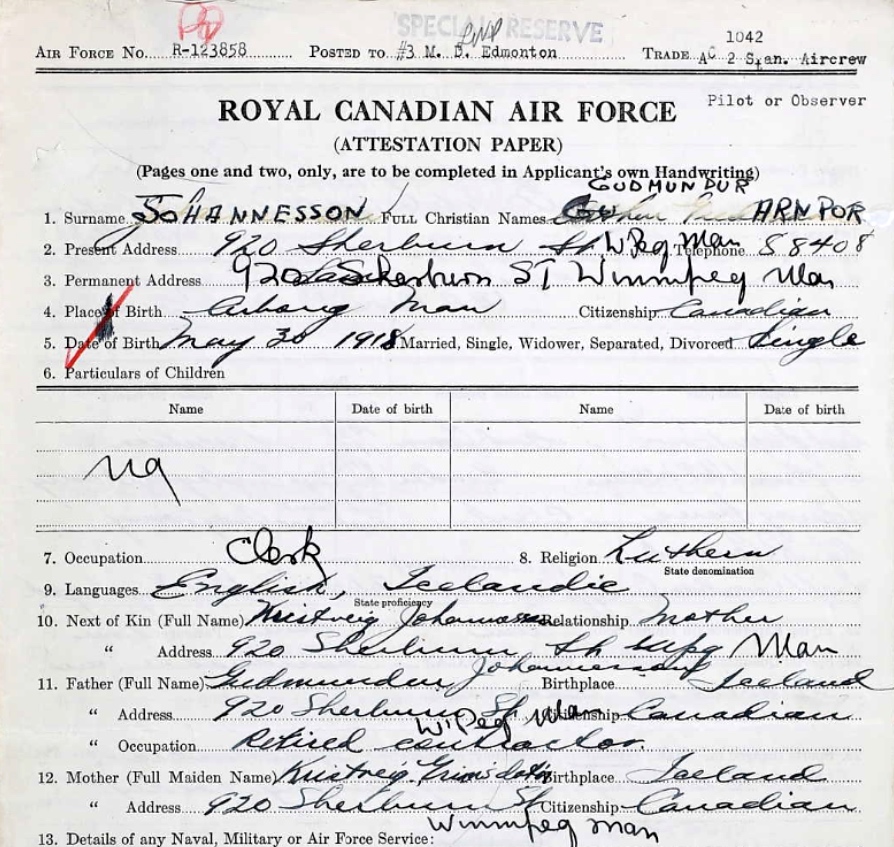 SPECIAL RESERVE
1042
AIR FORCE No. R-123858 POSTED TO #3 M. D. Edmonton TRADE AC 2 Stan. Aircrew
Pilot or Observer
ROYAL CANADIAN AIR FORCE
(ATTESTATION PAPER)
(Pages one and two, only, are to be completed in Applicant's own Handwriting)
GUDMUNDUR
1. Surname JOHANNESSON FULL Christian Names ARNPOR
2. Present Address 920 Sherburn St WPeg Man Telephone 88408
3. Permanent Address 920 Sherburn ST Winnipeg Man
4. Place of Birth Arborg Man Citizenship Canadian
5. Date of Birth May 30 1918 Married, Single, Widower, Separated, Divorced Single
6. Particulars of Children
Name Date of birth Name Date of birth
na
7. Occupation Clerk 8. Religion Luthern
State denomination
9. Languages English, Icelandic
State proficiency
10. Next of Kin (Full Name) Kristveig Johannesson Relationship Mother
" Address 920 Sherburn St Wpg Man
Johannesson
11. Father (Full Name) Gudmundur Birthplace Iceland
" Address 920 Sherburn St Citizenship Canadian
W'Peg Man
" Occupation Retired contractor.
12. Mother (Full Maiden Name) Kristveig Grimsdottir Birthplace Iceland
" Address 920 Sherburn St Citizenship Canadian
Winnipeg Man
13. Details of any Naval, Military or Air Force Service: